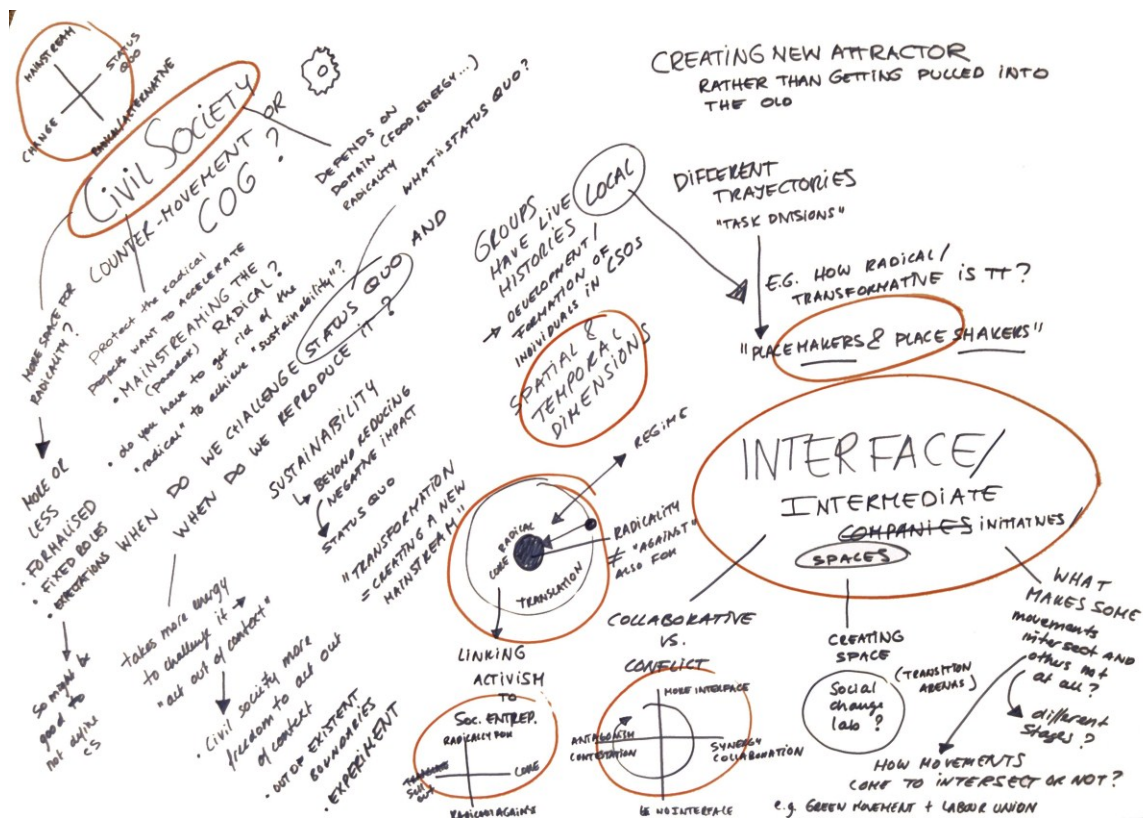 MAINSTREAM
STATUS
QUO
CHANGE
RADICAL/ALTERNATIVE
CIVIL SOCIETY OR
COUNTER-MOVEMENT
COG ?
DEPENDS ON
DOMAIN (FOOD, ENERGY...)
RADICALITY
WHAT IS STATUS QUO?
MORE SPACE FOR
RADICALITY?
MORE OR
LESS
• FORMALISED
• FIXED ROLES
• EXPECTATIONS
So might be
good to
not define
CS
Protect the radical
people want to accelerate
• MAINSTREAMING THE
(paradox) RADICAL?
• do you have to get rid of the
"radical" to achieve "sustainability"?
WHEN DO WE CHALLENGE STATUS QUO AND
WHEN DO WE REPRODUCE IT?
takes more energy
to challenge it →
"act out of context"
• Civil society more
freedom to act out
of context
• OUT OF EXISTENT
BOUNDARIES
• EXPERIMENT
SUSTAINABILITY
↳ BEYOND REDUCING
NEGATIVE IMPACT
STATUS QUO
"TRANSFORMATION
= CREATING A NEW
MAINSTREAM"
GROUPS
HAVE LIVE
HISTORIES
→ DEVELOPMENT/
FORMATION OF
INDIVIDUALS IN CSOS
LOCAL
SPATIAL &
TEMPORAL
DIMENSIONS
REGIME
RADICAL
CORE
TRANSLATION
RADICALITY
≠ "AGAINST"
ALSO FOR
LINKING
ACTIVISM
TO
SOC. ENTREP.
RADICALLY FOR
CORE
OUT
RADICALLY AGAINST
CREATING NEW ATTRACTOR
RATHER THAN GETTING PULLED INTO
THE OLD
DIFFERENT
TRAJECTORIES
"TASK DIVISIONS"
E.G. HOW RADICAL/
TRANSFORMATIVE IS TT?
"PLACE MAKERS & PLACE SHAKERS"
INTERFACE/
INTERMEDIATE
COMPANIES INITIATIVES/
SPACES
COLLABORATIVE
VS.
CONFLICT
MORE INTERFACE
ANTAGONISM
CONTESTATION
SYNERGY
COLLABORATION
NO INTERFACE
CREATING
SPACE
(TRANSITION
ARENAS)
Social
change
lab?
WHAT
MAKES SOME
movements
intersect AND
others not
at all?
different
stages?
HOW MOVEMENTS
COME TO INTERSECT OR NOT?
e.g. GREEN MOVEMENT + LABOUR UNION